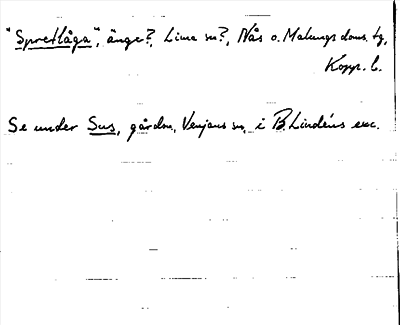 "Spretlåga", änge?, Lima sn?, Nås o. Malungs doms. tg,
Kopp. l.
Se under Sus, gårdsn, Venjans sn, i B. Lindéns exc.